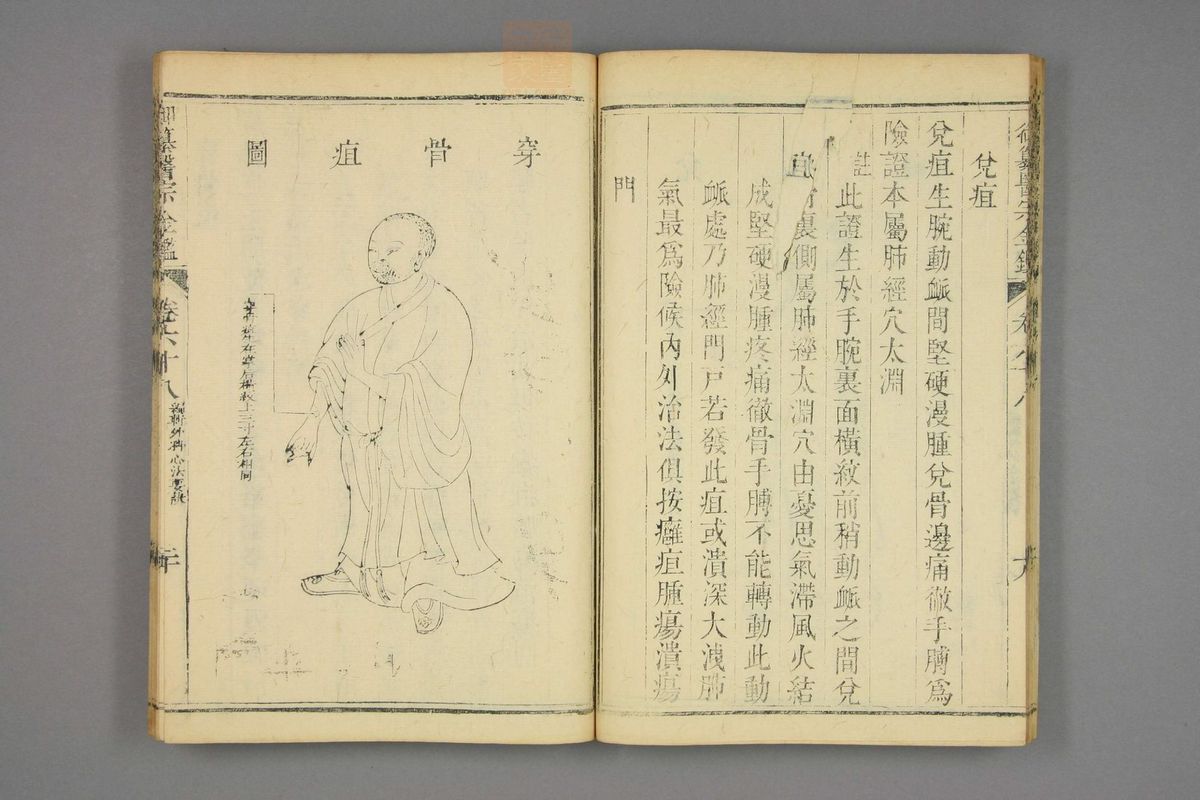 御纂醫宗金鑑
卷六十八
十九
兌疽
兌疽生腕動脈間堅硬漫腫兌骨邊痛徹手膊為
險證本屬肺經穴太淵
註此證生於手腕裏面橫紋前稍動脈之間兌
骨裏側屬肺經太淵穴由憂思氣滯風火結
成堅硬漫腫疼痛徹骨手膊不能轉動此動
脈處乃肺經門戶若發此疽或潰深大洩肺
氣最為險候內外治法俱按癰疽腫瘍潰瘍
門
穿骨疽圖
生在掌後橫紋上三寸左右相同
御纂醫宗金鑑
卷六十八
編輯外科心法要訣
二十